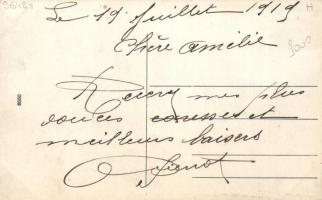 Le 19 Juillet 1919
Chère Amélie
Reçevez mes plus
douces caresses et
meilleurs baisers